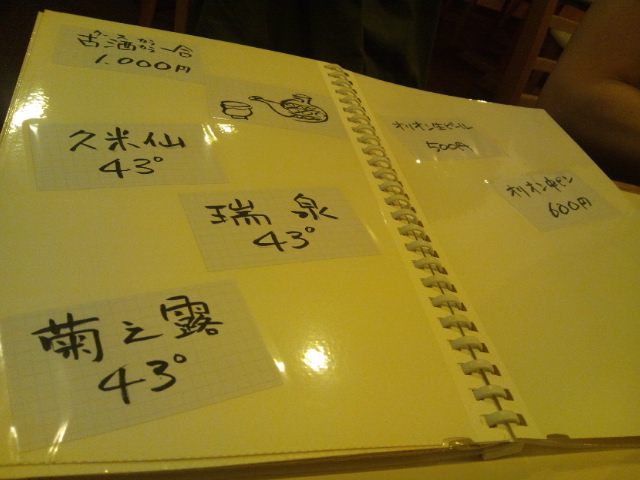 クースカラカラ
古酒 一合
1.000円
久米仙
43°
瑞泉
43°
菊之露
43°
オリオン生ビール
500円
オリオン中ビン
600円